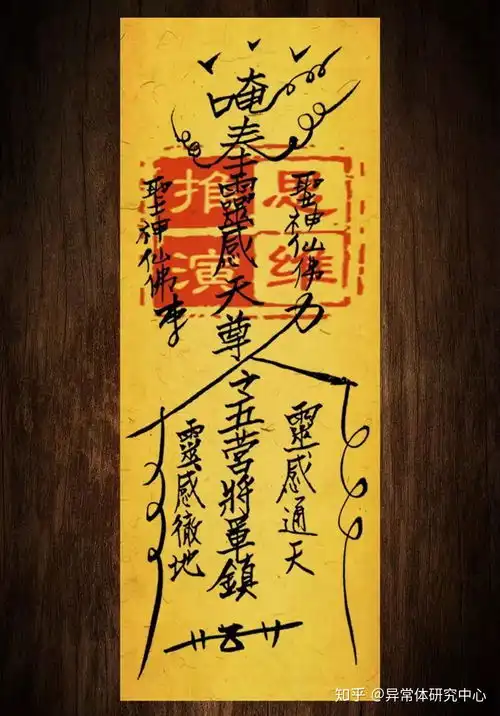 唵奉靈感天尊之五營將軍鎮
聖神仙佛力
聖神仙佛
思维
推演
靈感通天
靈感徹地
知乎 @异常体研究中心